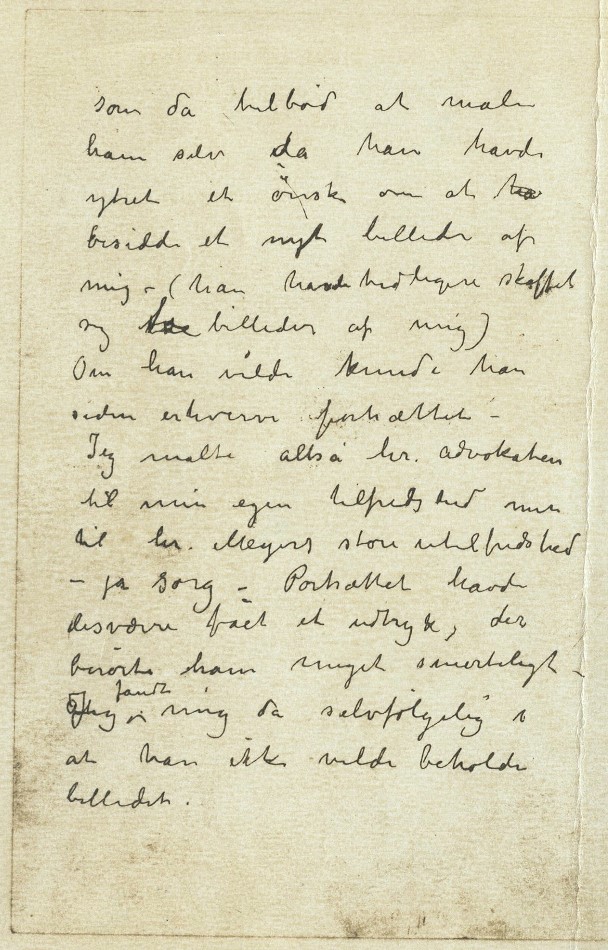 som da tilbød at male
ham selv da han havde
ytret et ønske om at ha
besidde et nyt billede af
mig – (han havde tidligere skaffet
sig billeder af mig)
Om han vilde kunde han
siden erhverve portrættet –
Jeg malte altså hr. advokaten
til min egen tilfredshed men
til hr. Meyers store utilfredshed
– ja sorg – Portrættet havde
desværre fået et udtryk, der
berørte ham meget smerteligt –
Jeg fandt mig da selvfølgelig i
at han ikke vilde beholde
billedet.